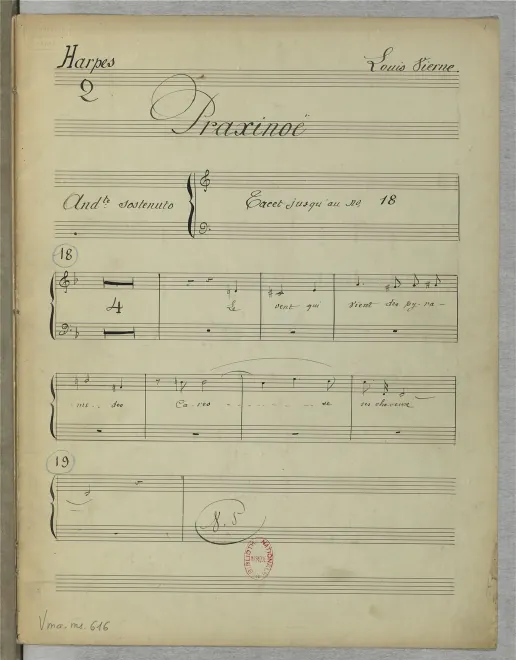 Harpes
Louis Vierne.
2
Praxinoë
And.te sostenuto
Tacet jusqu'au No 18
18
4
Le vent qui vient des py-ra-
mi-des Ca-res-se ses cheveux
19
V.S
BIBLIOTH. NATIONALE
Vma. ms. 616